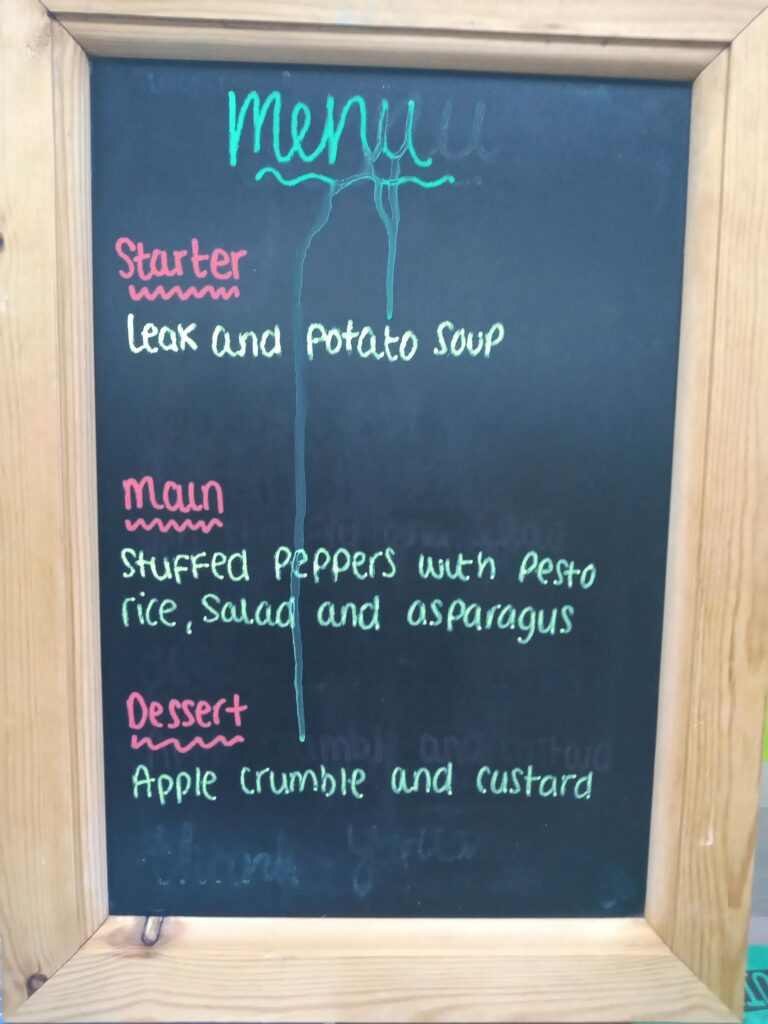 Menu
Starter
Leak and potato soup
Main
Stuffed peppers with pesto
rice, salad and asparagus
Dessert
Apple crumble and custard
thank you